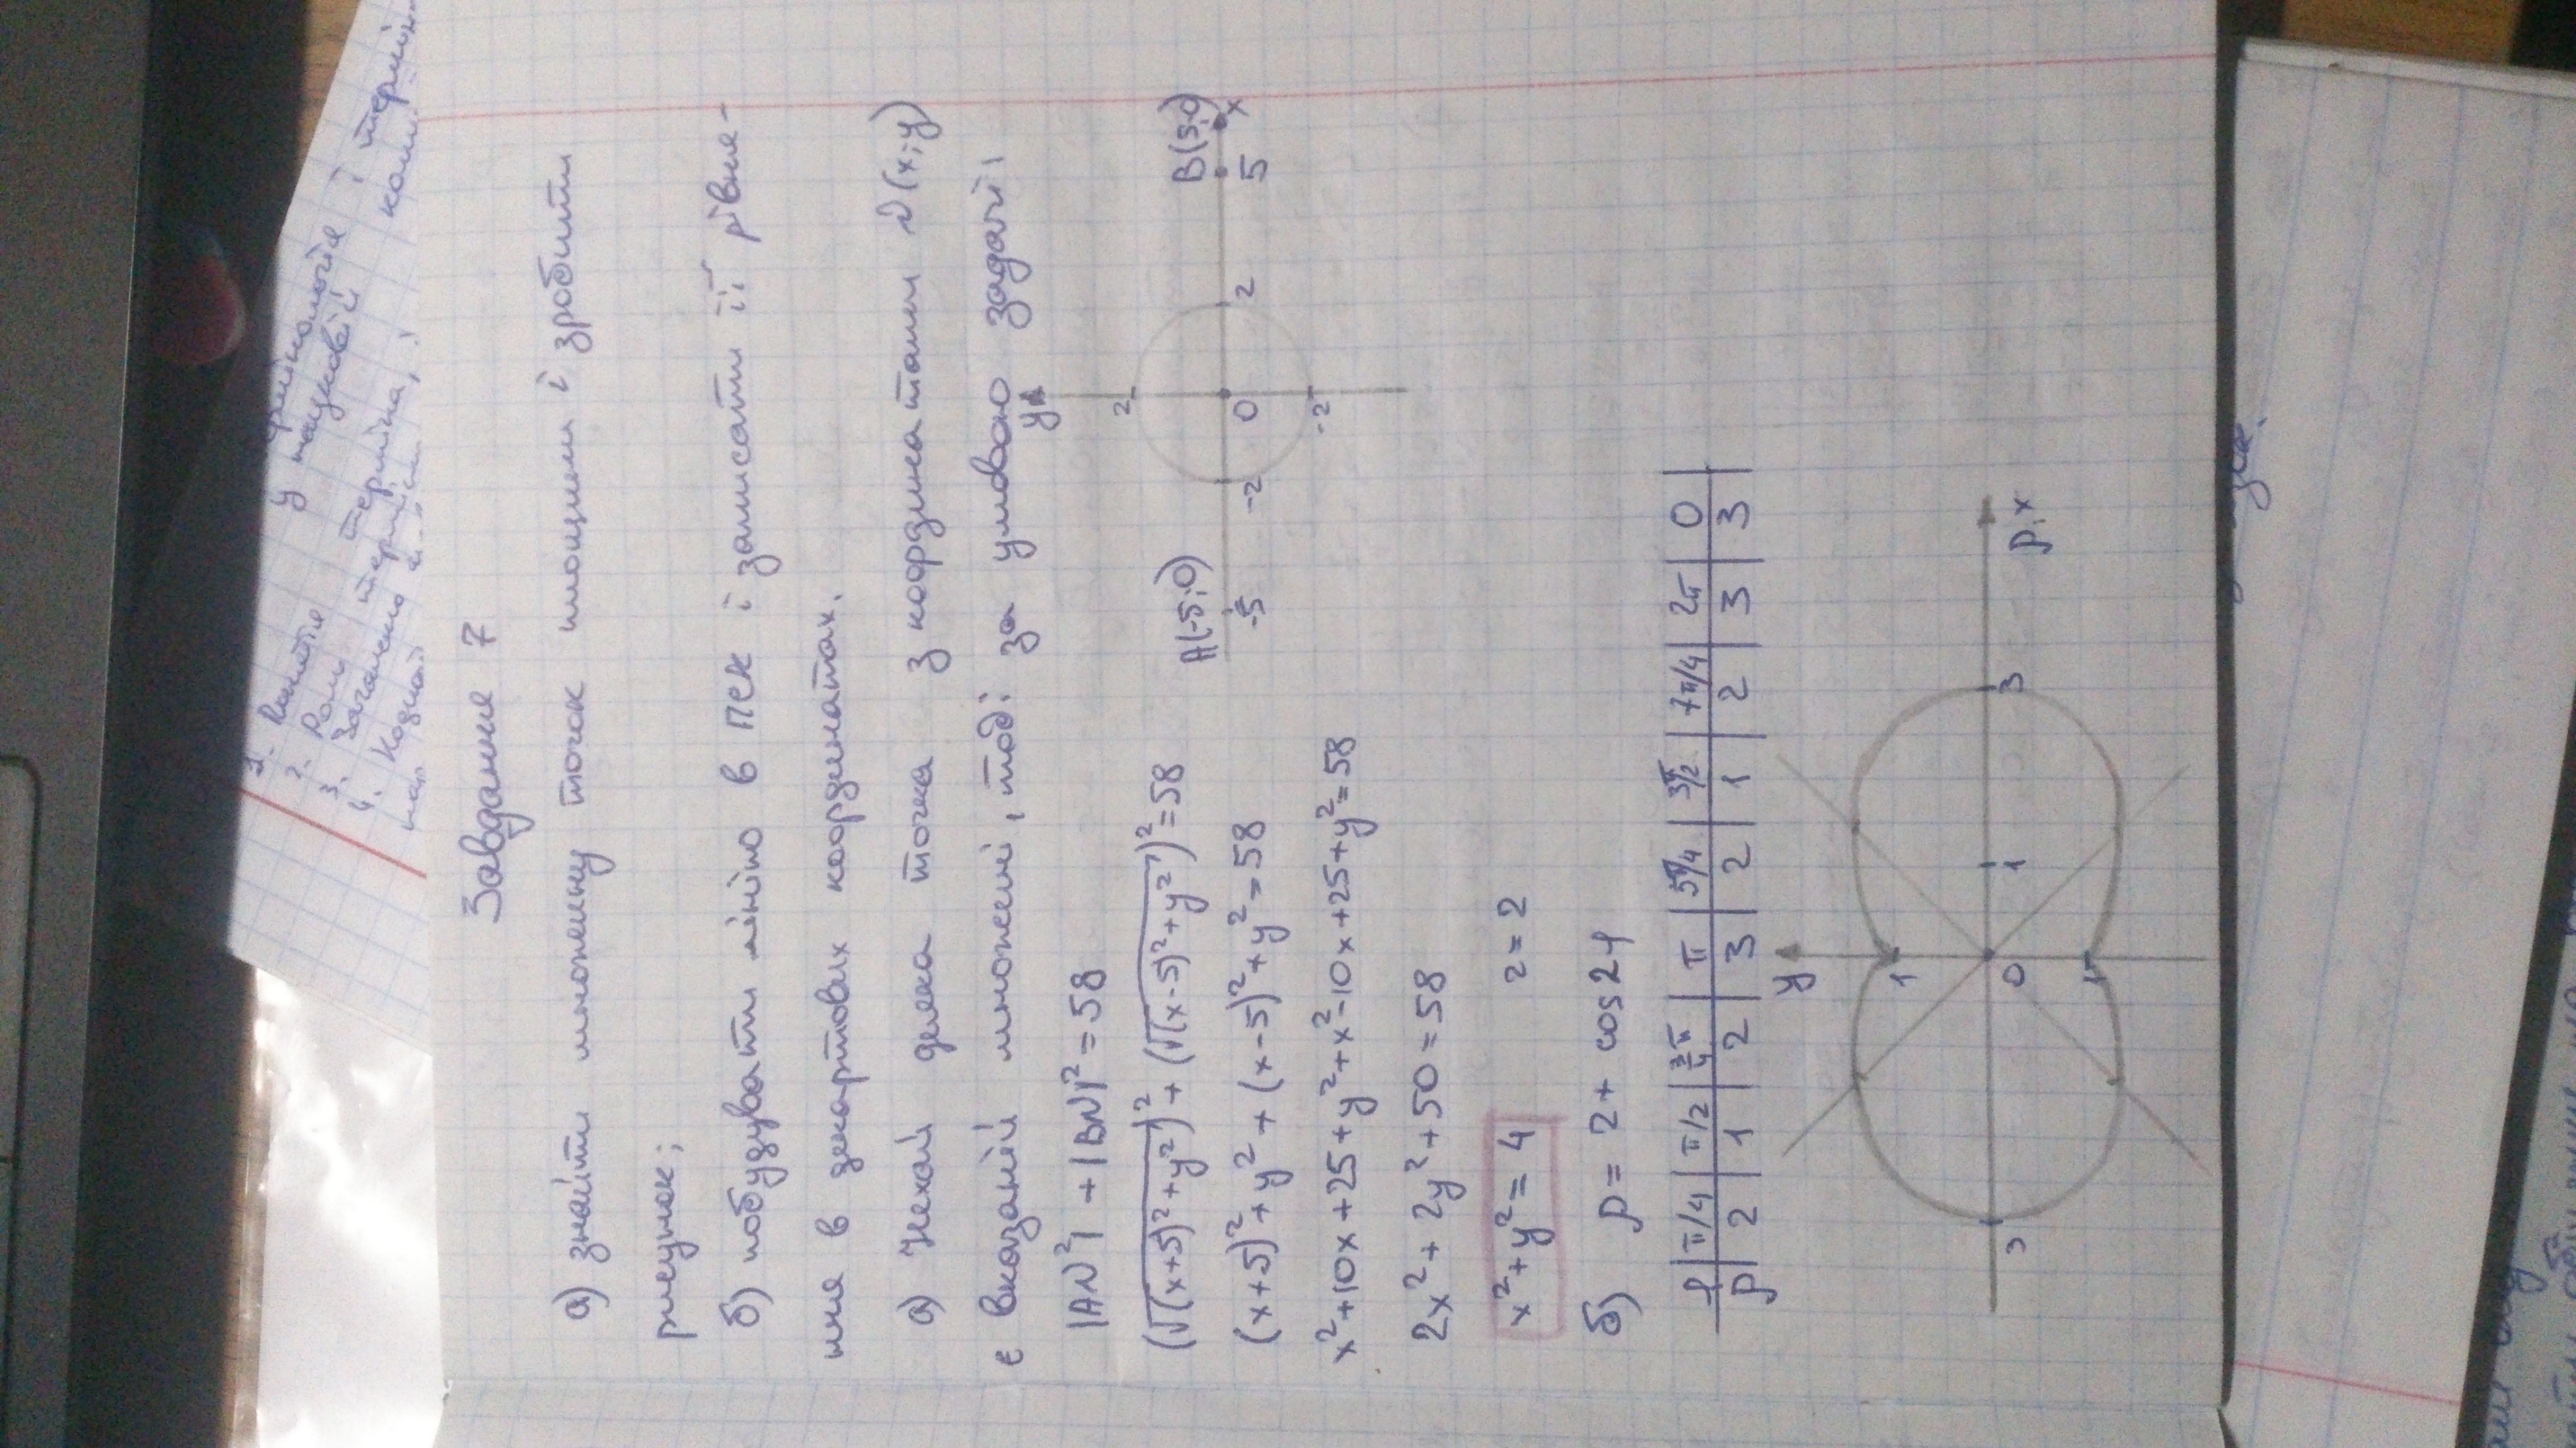 1. Поняття
2. Роль терміна
3. Загальна
4. Кодиф
у науковій
термінологія і термін
Завдання 7
а) знайти множину точок площини і зробити
рисунок;
б) побудувати лінію в ПСК і записати її рівня-
ння в декартових координатах.
а) Нехай деяка точка з координатами N(x;y)
є вказаній множині, тоді за умовою задачі:
|AN²| + |BN|² = 58
(√((x+5)²+y²))² + (√((x-5)²+y²))² = 58
(x+5)²+y² + (x-5)²+y² = 58
x²+10x+25+y²+x²-10x+25+y²=58
2x²+2y²+50=58
x²+y²=4 r=2
y
2
A(-5;0) B(5;0)
-5 -2 0 2 5 x
-2
б) ρ = 2 + cos2φ
φ π/4 π/2 3/4π π 5π/4 3π/2 7π/4 2π 0
ρ 2 1 2 3 2 1 2 3 3
y
1
3 0 1 3 ρ, x
1